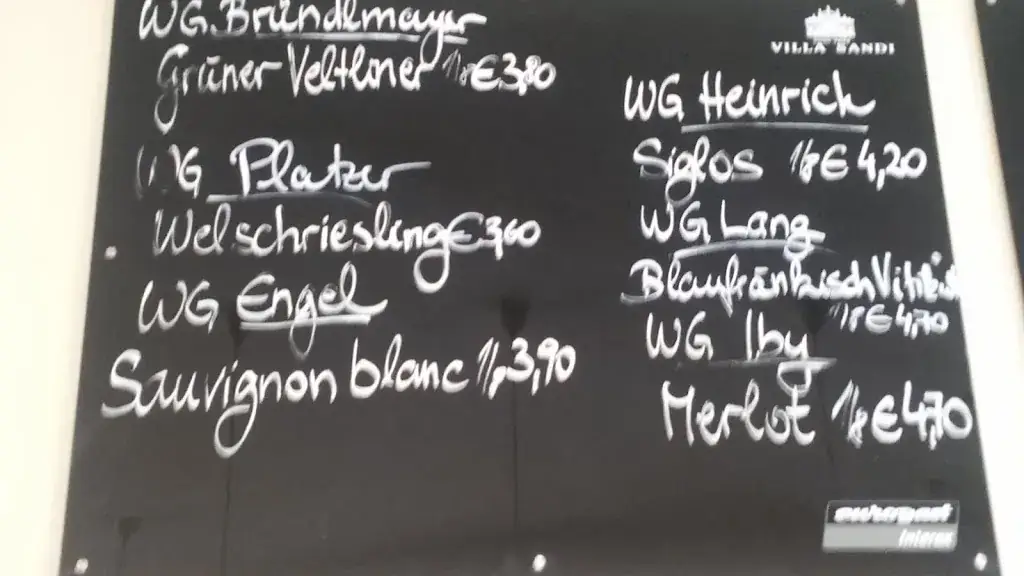 WG. Bründlmayer
Grüner Veltliner 1/8 € 3,80
WG Platzer
Welschriesling € 3,60
WG Engel
Sauvignon blanc 1/8 3,90
VILLA SANDI
WG Heinrich
Siglos 1/8 € 4,20
WG Lang
Blaufränkisch
1/8 € 4,70
WG Iby
Merlot 1/8 € 4,70